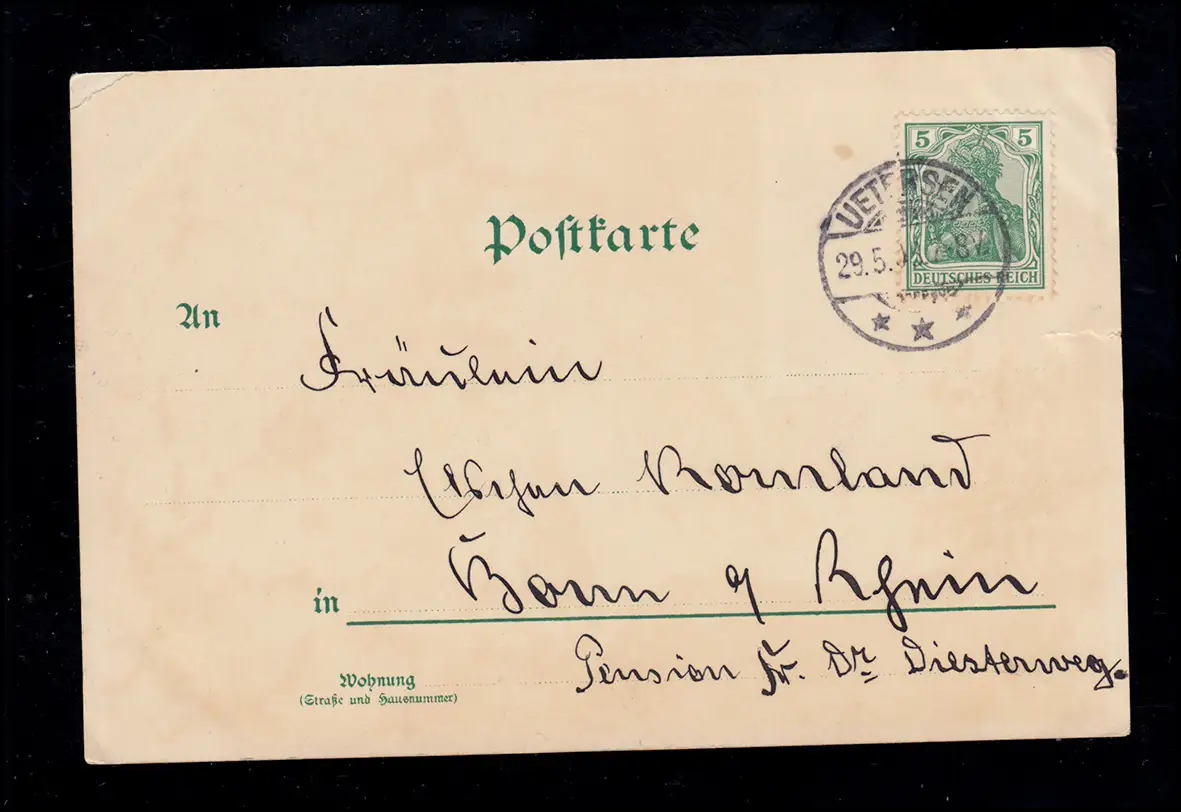 5 5
DEUTSCHES REICH
UETERSEN
29.5.
8V.
Postkarte
An
Fräulein
Elschen
in Bonn a/ Rhein
Wohnung
(Straße und Hausnummer)
Pension Fr. Dr. Diesterweg.